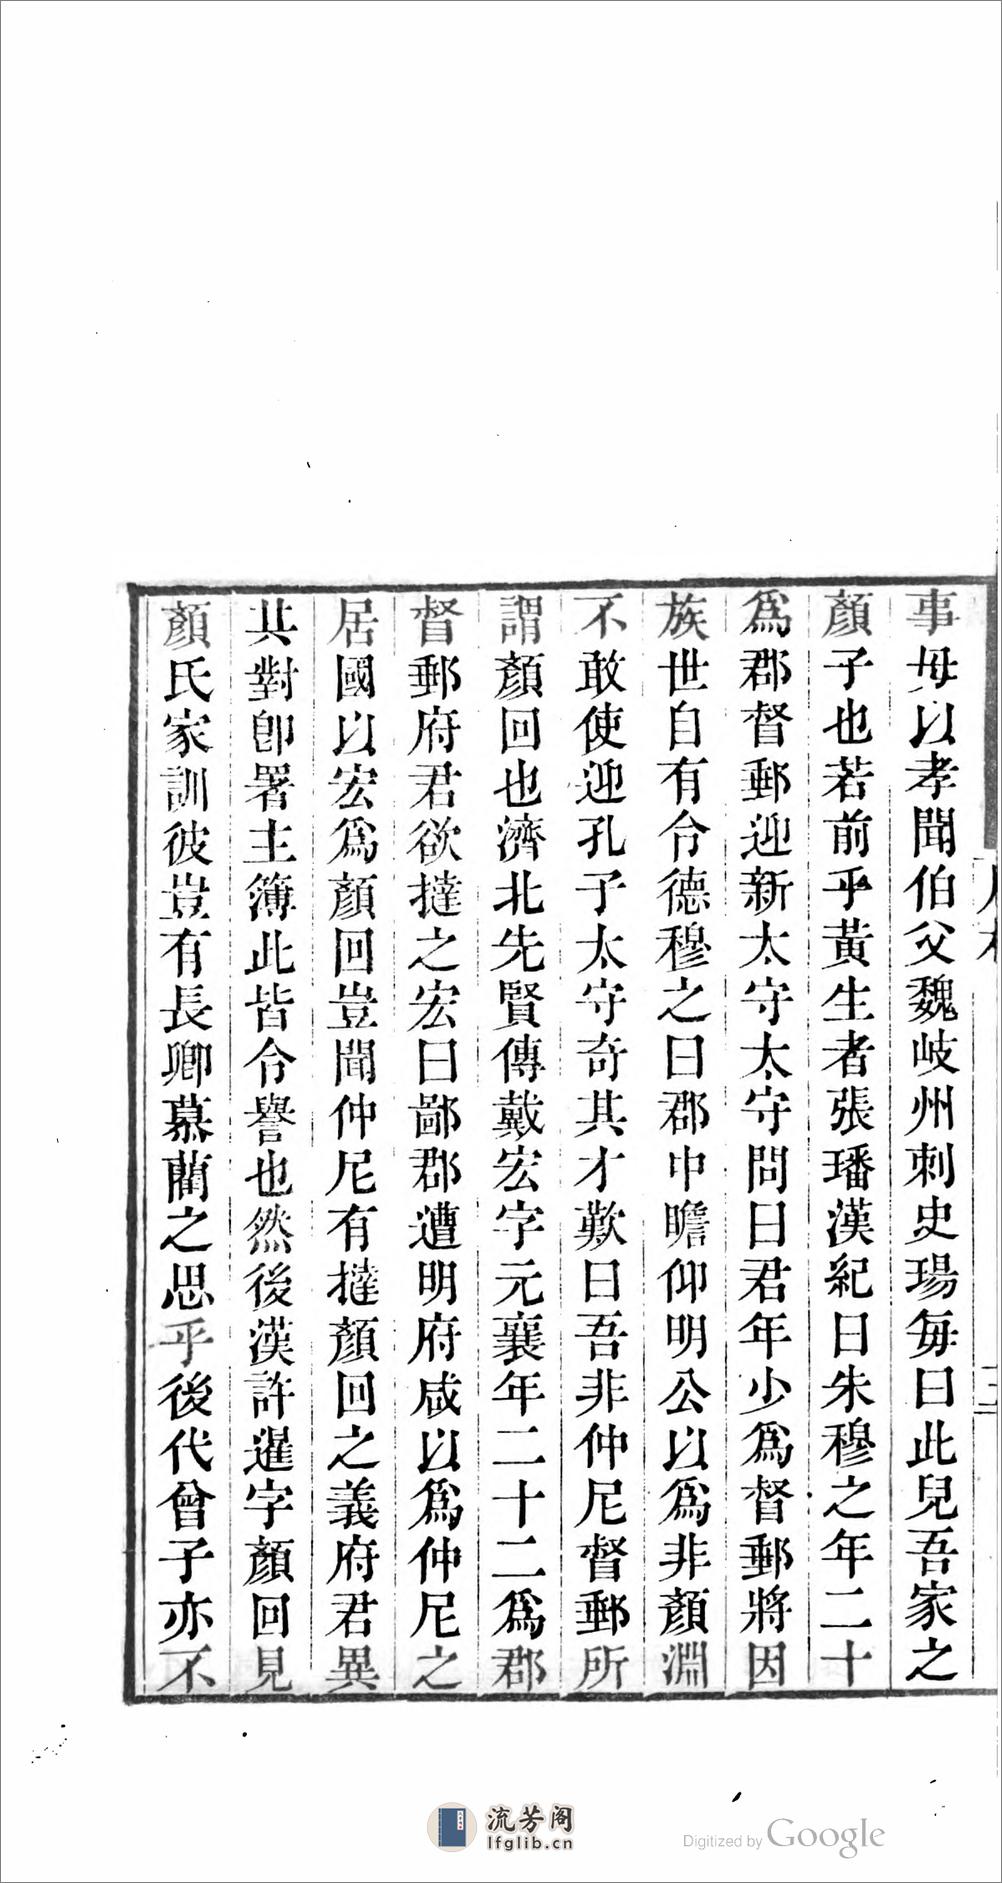 事母以孝聞伯父魏岐州刺史瑒每曰此兒吾家之
顏子也若前乎黃生者張璠漢紀曰朱穆之年二十
爲郡督郵迎新太守太守問曰君年少爲督郵將因
族世自有令德穆之曰郡中瞻仰明公以爲非顏淵
不敢使迎孔子太守奇其才歎曰吾非仲尼督郵所
謂顏回也濟北先賢傳戴宏字元襄年二十二爲郡
督郵府君欲撻之宏曰鄙郡遭明府咸以爲仲尼之
居國以宏爲顏回豈聞仲尼有撻顏回之義府君異
其對卽署主簿此皆令譽也然後漢許暹字顏回見
顏氏家訓彼豈有長卿慕藺之思乎後代曾子亦不
流芳阁
lfglib.cn
Digitized by Google